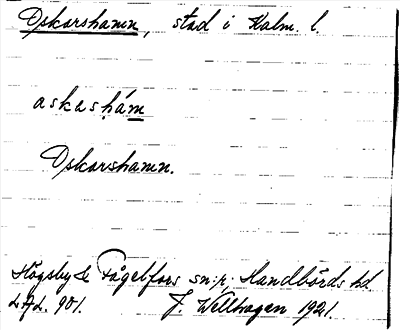 Oskarshamn, stad i Kalm. l.
askashám
Oskarshamn.
Högsby & Fågelfors sn:r, Handbörds hd
901. J. Wellhagen 1921.